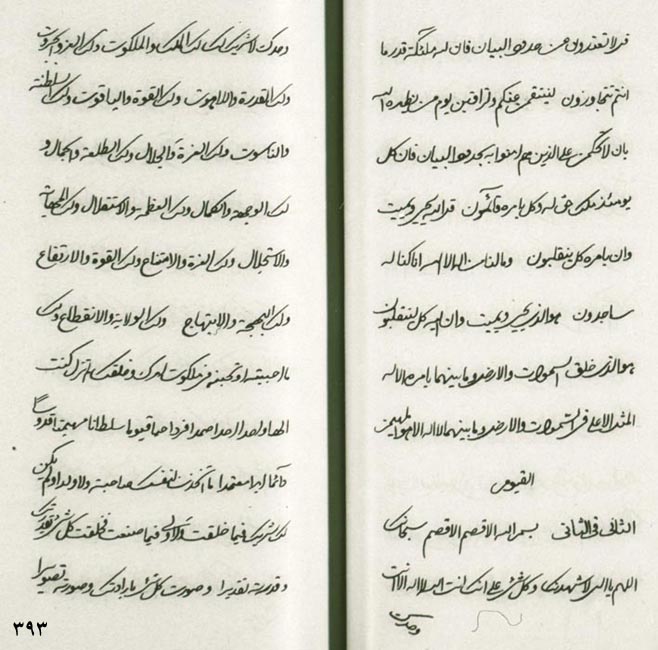 فلا تعتذرون عن حدود البيان فان لله ملئكة قدر ما
انتم تتجاوزون لينتقمن عنكم ولتراقبن يوم من يظهره الله
بان لا تحكمن على الذين هم امنوا به بحدود البيان فان كل
يومئذ ملك حق له وكل بامره قائمون قل الله يحيي ويميت
وان بامره كل ينقلبون وما لنا من اله الا الله انا كنا له
ساجدون هو الذي يحيي ويميت وان اليه كل لينقلبون
هو الذي خلق السموات والارض وما بينهما بامره الا له
المثل الاعلى في السموات والارض وما بينهما لا اله الا هو المهيمن
القيوم
الثاني في الثاني بسم الله الاقصم الاقصم سبحانك
اللهم يا الهي لاشهدنك وكل شيء على انك انت الله لا اله الا انت
وحدك
وحدك لا شريك لك لك الملك والملكوت ولك العز والجبروت
ولك القدرة واللاهوت ولك القوة والياقوت ولك السلطنة
والناسوت ولك العزة والجلال ولك الطلعة والجمال و
لك الوجهة والكمال ولك العظمة والاستقلال ولك
والاستجلال ولك العزة والامتناع ولك القوة والارتفاع
ولك البهجة والابتهاج ولك الولاية والانقطاع ولك
ما احببته او تحبنه من ملكوت امرك وخلقك لم تزل كنت
الها واحدا احدا صمدا فردا حيا قيوما سلطانا مهيمنا قدوسا
دائما ابدا معتمدا ما اتخذت لنفسك صاحبة ولا ولدا ولم يكن
لك شريك فيما خلقت ولا ولي فيما صنعت قد خلقت كل شيء بقدرتك
وقدرته تقديرا وصورت كل شيء بارادتك وصورته تصويرا
٣٩٣